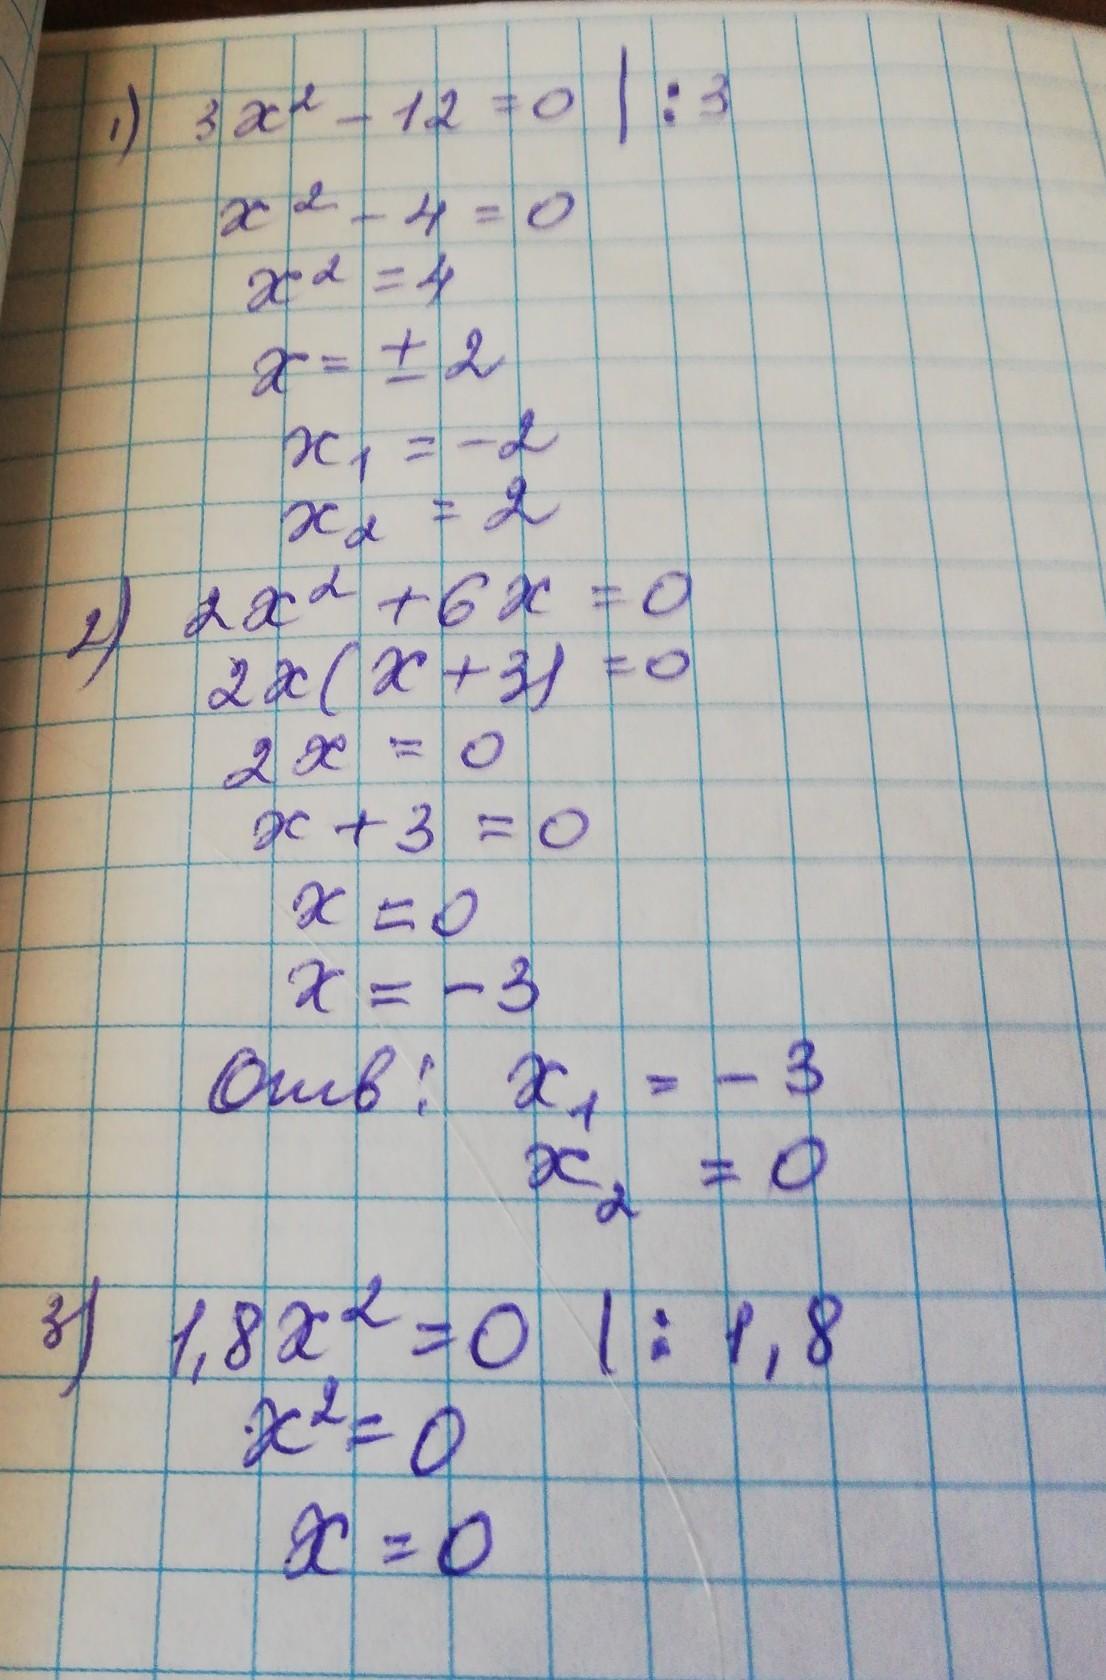 1) 3x² - 12 = 0 | : 3
x² - 4 = 0
x² = 4
x = ± 2
x₁ = -2
x₂ = 2
2) 2x² + 6x = 0
2x(x + 3) = 0
2x = 0
x + 3 = 0
x = 0
x = -3
Отв: x₁ = -3
x₂ = 0
3) 1,8x² = 0 | : 1,8
x² = 0
x = 0